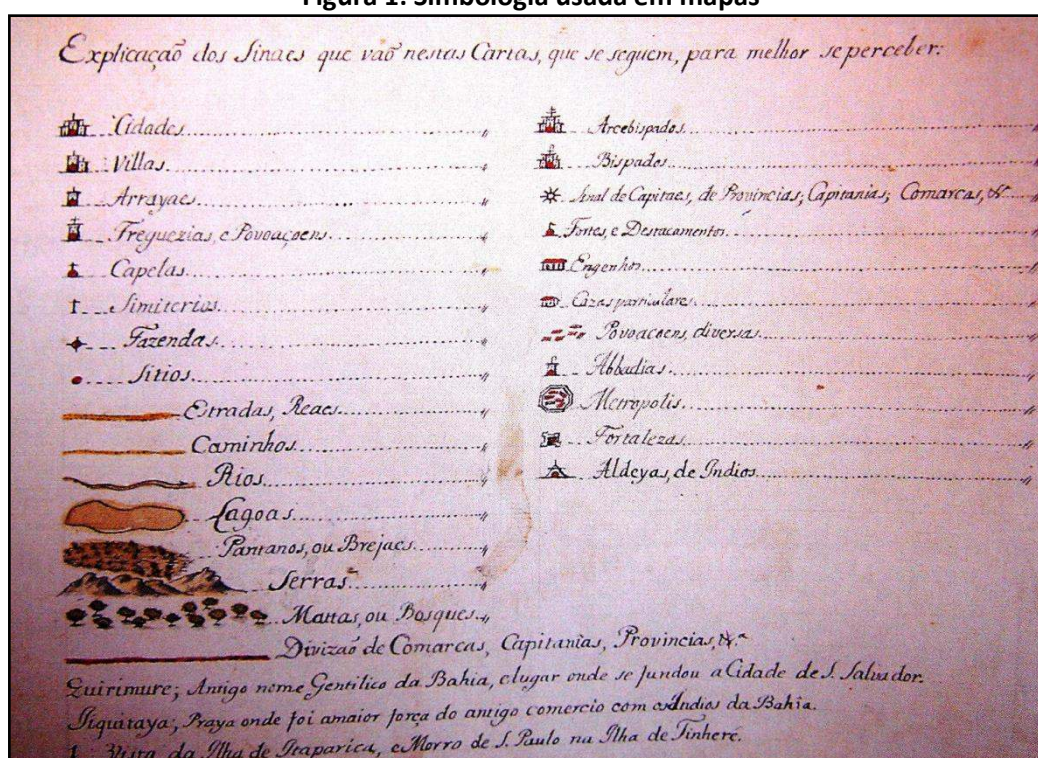 Figura 1: Simbologia usada em mapas
Explicação dos Sinaes que vaõ nestas Cartas, que se seguem, para melhor se perceber:
Cidades
Villas
Arrayaes
Freguezias, e Povoaçoens
Capelas
Simiterios
Fazendas
Sitios
Estradas, Reaes
Caminhos
Rios
Lagoas
Pantanos, ou Brejaes
Serras
Mattas, ou Bosques
Arcebispados
Bispados
Sinal de Capitaes, de Provincias, Capitanias; Comarcas, &ª
Fortes, e Destacamentos
Engenhos
Cazas particulares
Povoacoens, diversas
Abbadias
Metropolis
Fortalezas
Aldeyas, de Indios
Divizaõ de Comarcas, Capitanîas, Provincias, &ª
Quirimure; Antigo nome Gentilico da Bahia, e lugar onde se fundou a Cidade de S. Salvador.
Jiquitaya; Praya onde foi a maior força do antigo comercio com os Indios da Bahia.
1 Vista da Ilha de Itaparica, e Morro de S. Paulo na Ilha de Tinheré.